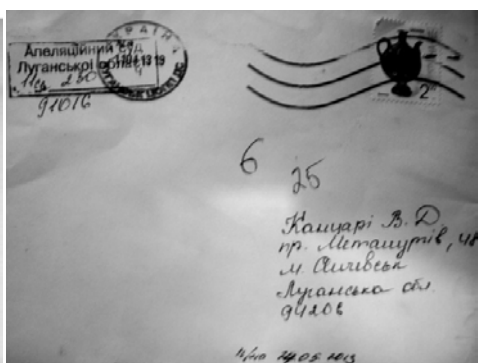 УКРАЇНА
Апеляційний суд
Луганської області
91016
2
6
25
Канцарі В. Д.
пр. Металургів, 48
м. Алчевськ
Луганська обл.
94206
24 05 2013